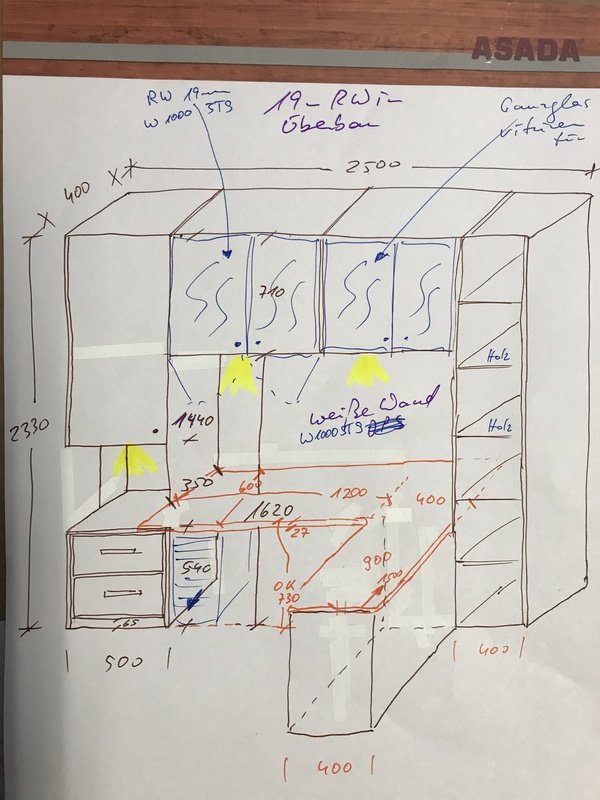 ASADA
RW 19mm
W 1000 ST9
19mm RW in
Überbau
Ganzglas
Vitrinen
tür
400
2500
710
2330
1440
Holz
Holz
weiße Wand
W1000 ST9
350
600
1200
400
1620
27
540
900
1500
OK
730
65
500
400
400